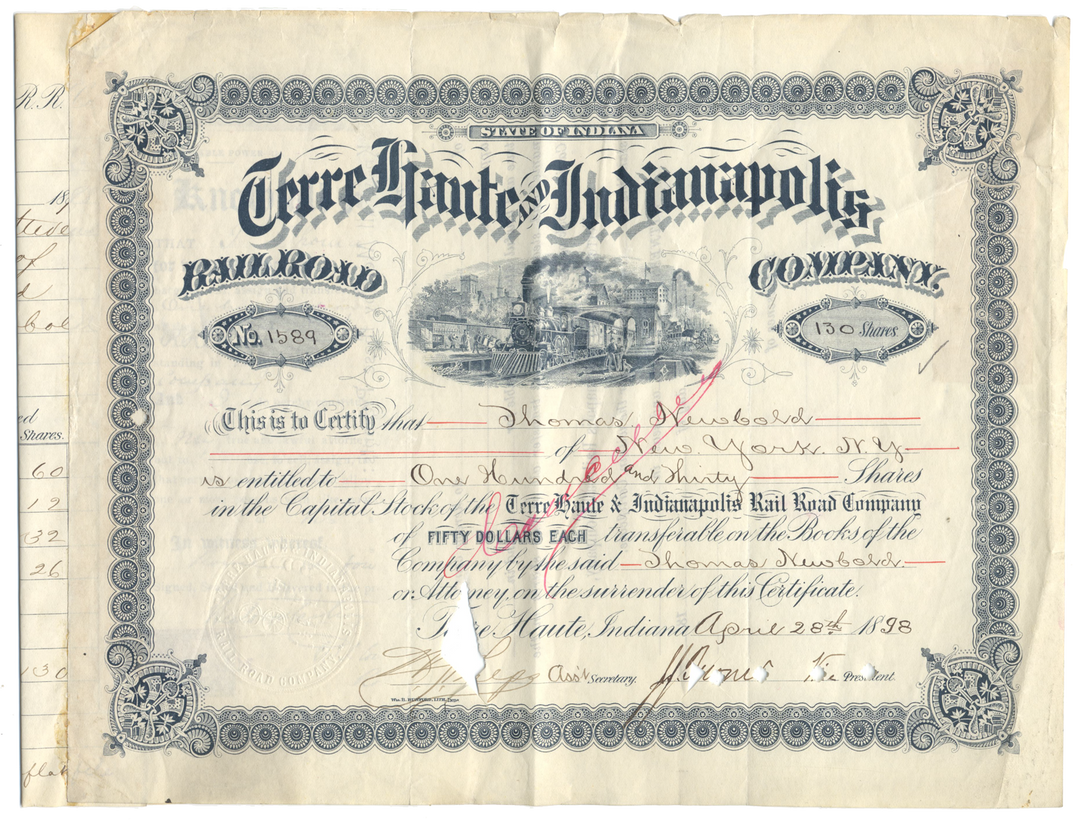 R.R.
18
of
d
ed
Shares.
60
12
32
26
130
STATE OF INDIANA
Terre Haute AND Indianapolis
RAILROAD COMPANY.
No. 1589
130 Shares
This is to Certify that Thomas Newbold
of New York. N.Y.
is entitled to One Hundred and Thirty Shares
in the Capital Stock of the Terre Haute & Indianapolis Rail Road Company
of FIFTY DOLLARS EACH transferable on the Books of the
Company by the said Thomas Newbold.
or Attorney, on the surrender of this Certificate.
Terre Haute, Indiana April 28th 1898
Ass't Secretary. Vice President.
Cancelled
RAIL ROAD COMPANY